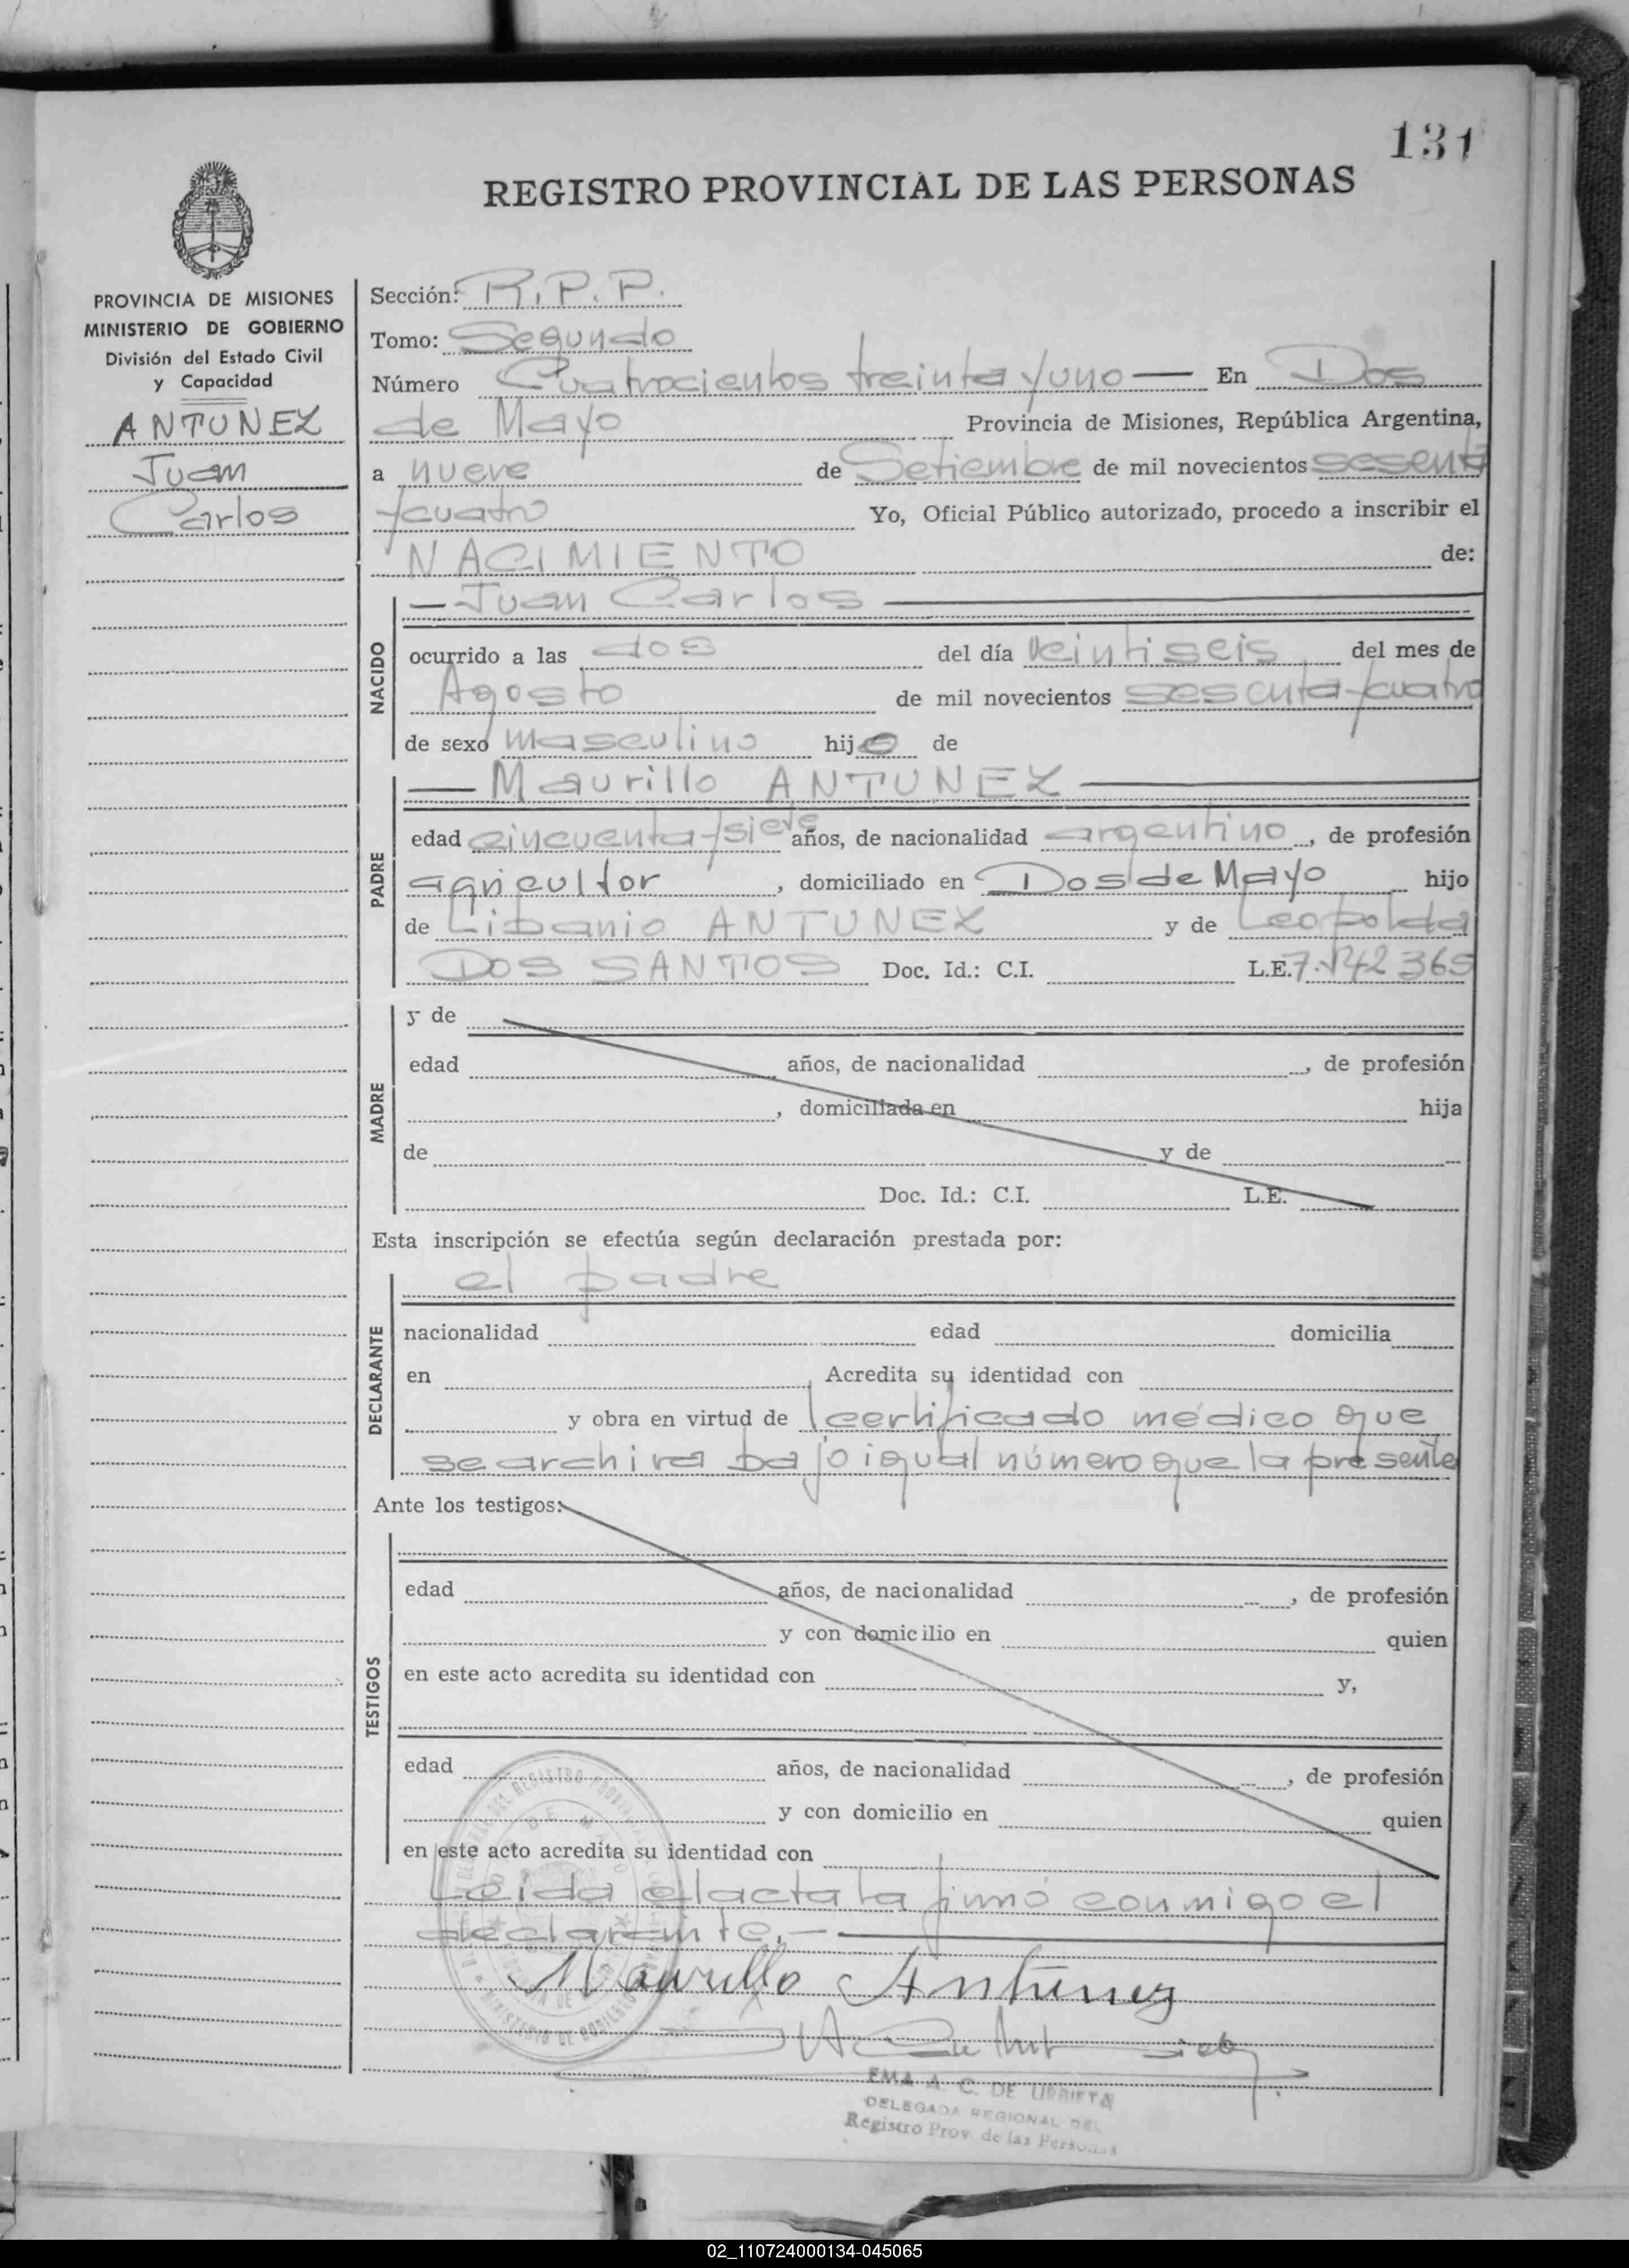 131
REGISTRO PROVINCIAL DE LAS PERSONAS
PROVINCIA DE MISIONES
MINISTERIO DE GOBIERNO
División del Estado Civil
y Capacidad
ANTUNEZ
Juan
Carlos
Sección: R.P.P.
Tomo: Segundo
Número Cuatrocientos treinta y uno — En Dos
de Mayo Provincia de Misiones, República Argentina,
a nueve de Setiembre de mil novecientos sesenta
y cuatro Yo, Oficial Público autorizado, procedo a inscribir el
NACIMIENTO de:
NACIDO
— Juan Carlos —
ocurrido a las dos del día veintiseis del mes de
Agosto de mil novecientos sesenta y cuatro
de sexo masculino hijo de
PADRE
— Maurillo ANTUNEZ —
edad cincuenta y siete años, de nacionalidad argentino, de profesión
agricultor, domiciliado en Dos de Mayo hijo
de Libanio ANTUNEZ y de Leopolda
DOS SANTOS Doc. Id.: C.I. L.E. 7.142365
MADRE
y de
edad años, de nacionalidad , de profesión
, domiciliada en hija
de y de
Doc. Id.: C.I. L.E.
Esta inscripción se efectúa según declaración prestada por:
DECLARANTE
el padre
nacionalidad edad domicilia
en Acredita su identidad con
y obra en virtud de certificado médico que
se archiva bajo igual número que la presente
Ante los testigos:
TESTIGOS
edad años, de nacionalidad , de profesión
y con domicilio en quien
en este acto acredita su identidad con y,
edad años, de nacionalidad , de profesión
y con domicilio en quien
en este acto acredita su identidad con
Leida el acta la firmó conmigo el
declarante. —
Maurillo Antunez
EMA A. C. DE URRIETA
DELEGADA REGIONAL DEL
Registro Prov. de las Personas
02_110724000134-045065